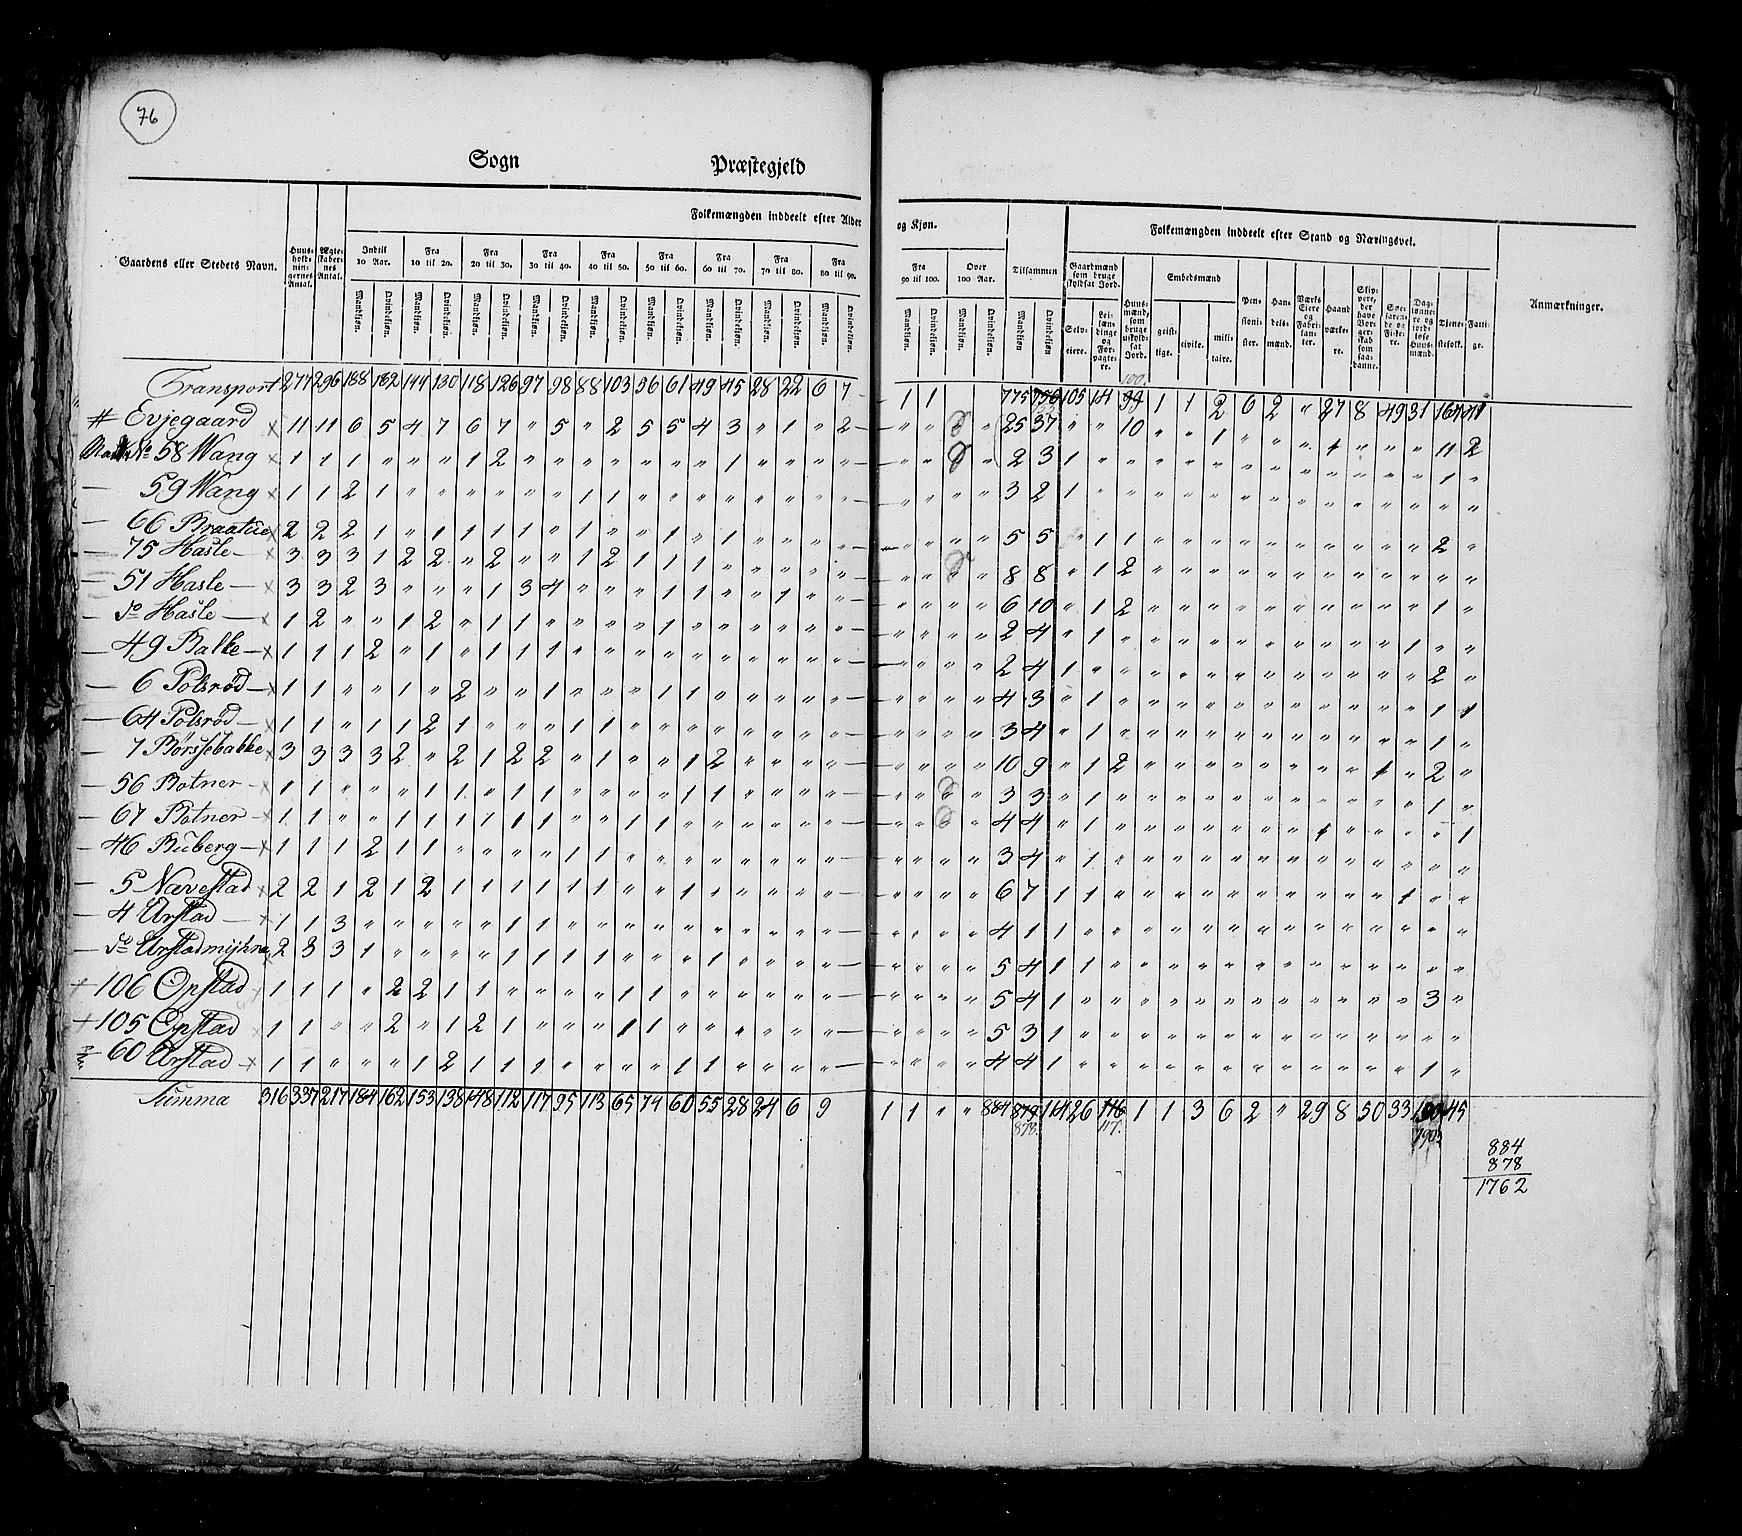 76
Sogn Præstegjeld
Folkemængden inddeelt efter Alder og Kjøn. Folkemængden inddeelt efter Stand og Næringsvei.
Gaardens eller Stedets Navn. Huusholdningernes Antal. Ægteskabernes Antal. Indtil 10 Aar. Fra 10 til 20. Fra 20 til 30. Fra 30 til 40. Fra 40 til 50. Fra 50 til 60. Fra 60 til 70. Fra 70 til 80. Fra 80 til 90. Fra 90 til 100. Over 100 Aar. Tilsammen Gaardmænd som bruge skyldsat Jord. Embedsmænd Anmærkninger.
Mandkjøn. Qvindekjøn. Mandkjøn. Qvindekjøn. Mandkjøn. Qvindekjøn. Mandkjøn. Qvindekjøn. Mandkjøn. Qvindekjøn. Mandkjøn. Qvindekjøn. Mandkjøn. Qvindekjøn. Mandkjøn. Qvindekjøn. Mandkjøn. Qvindekjøn. Mandkjøn. Qvindekjøn. Mandkjøn. Qvindekjøn. Mandkjøn Qvindekjøn Selveiere. Huusmænd, som bruge uskyldsat Jord. geistlige. civile. militaire. Pensionister. Handelsmænd. Haandværkere. Tjenestefolk. Fattige.
100.
Transport 277 296 188 182 144 130 118 126 97 98 88 103 56 61 49 45 28 22 6 7 1 1 775 105 14 99 1 1 2 6 2 " 27 8 49 31 164 41
# Evjegaard × 11 11 6 5 4 7 6 7 " 5 " 2 5 5 4 3 " 1 " 2 " " " 25 37 " " 10 " " 1 " " " " 1 " " " 11 2
No 58 Wang × 1 1 1 " " " 1 2 " " " " " " " 1 " " " " " " " 2 3 1 " " " " " " " " " " " " " 1 "
— 59 Wang × 1 1 2 1 " " " " " " 1 1 " " " " " " " " " " " " 3 2 1 " " " " " " " " " " " " " " "
— 66 Braatue × 2 2 2 1 " 1 1 1 1 " 1 " " 1 " 1 " " " " " " " " 5 5 " 1 1 " " " " " " " " " " " 2 "
— 75 Hasle — × 3 3 3 1 2 2 " 2 " " 1 2 1 1 1 " " " " " " " " 8 8 " 1 2 " " " " " " " " " " " " "
— 51 Hasle — × 3 3 2 3 " " " 1 3 4 " " " 1 1 " " 1 " " " " " " 6 10 " 1 2 " " " " " " " " " " " 1 "
— do Hasle — × 1 2 " " 1 2 " 1 1 " " " " 1 " " " " " " " " " " 2 4 " 1 " " " " " " " " " " " 1 " "
— 49 Balke — × 1 1 1 2 " 1 " 1 1 1 " " " " " " " " " " " " " " 2 4 1 " " " " " " " " " " " " " 2 "
— 6 Polsrød — × 1 1 " " 1 " 2 " " 1 " " " 1 1 " " " " " " " " " 4 3 " 1 " " " " " " " " " " " " 1 1
— 64 Polsrød — × 1 1 " 1 1 2 1 " " " 1 1 " " " " " " " " " " " " 3 4 " 1 " " " " " " " " " " " " 1 "
— 7 Børssebakke × 3 3 3 3 2 " 2 1 2 2 " 1 " " 1 2 " " " " " " " " 10 9 " 1 2 " " " " " " " " " 1 " 2 "
— 56 Botner — × 1 1 " " " 1 1 " 1 1 " " " " 1 1 " " " " " " " 3 3 " 1 " " " " " " " " " " " " 1 "
— 67 Botner — × 1 1 " " 1 1 1 1 1 1 " " 1 1 " " " " " " " " " 4 4 " 1 " " " " " " " 1 " " " " " 1
— 46 Buberg — × 1 1 1 2 1 1 " " " " 1 1 " " " " " " " " " " " " 3 4 " 1 " " " " " " " " " " " " " "
— 5 Nævestad × 2 2 1 2 1 2 1 1 1 1 1 1 " " 1 " " " " " " " " " 6 7 1 1 " " " " " " " " " " 1 " "
— 4 Urstad — × 1 1 3 " " " " " 1 1 " " " " " " " " " " " " " " 4 1 1 " " " " " " " " " " " " " " "
— do Urstadmyhra × 2 3 3 1 " " " " 1 1 1 1 " " " 1 " " " " " " " " 5 4 1 1 " " " " " " " " " " " " " "
+ 106 Opstad 1 1 1 " 2 2 1 1 " " " " 1 1 " " " " " " " " " " 5 4 1 " " " " " " " " " " " " " 3 "
+ 105 Opstad 1 1 " " 2 " 1 2 1 " " " 1 1 " " " " " " " " " " 5 3 1 " " " " " " " " " " " " " " "
60 Urstad — × 1 1 " " " 1 2 1 1 1 " " " " 1 1 " " " " " " " " 4 4 1 " " " " " " " " " " " " " 1 "
Summa 316 337 217 184 162 153 138 148 112 117 95 113 65 74 60 55 28 24 6 9 1 1 " " 884 879 114 26 116 1 1 3 6 2 " 29 8 50 33 45
878. 117. 190.
884
878
1762